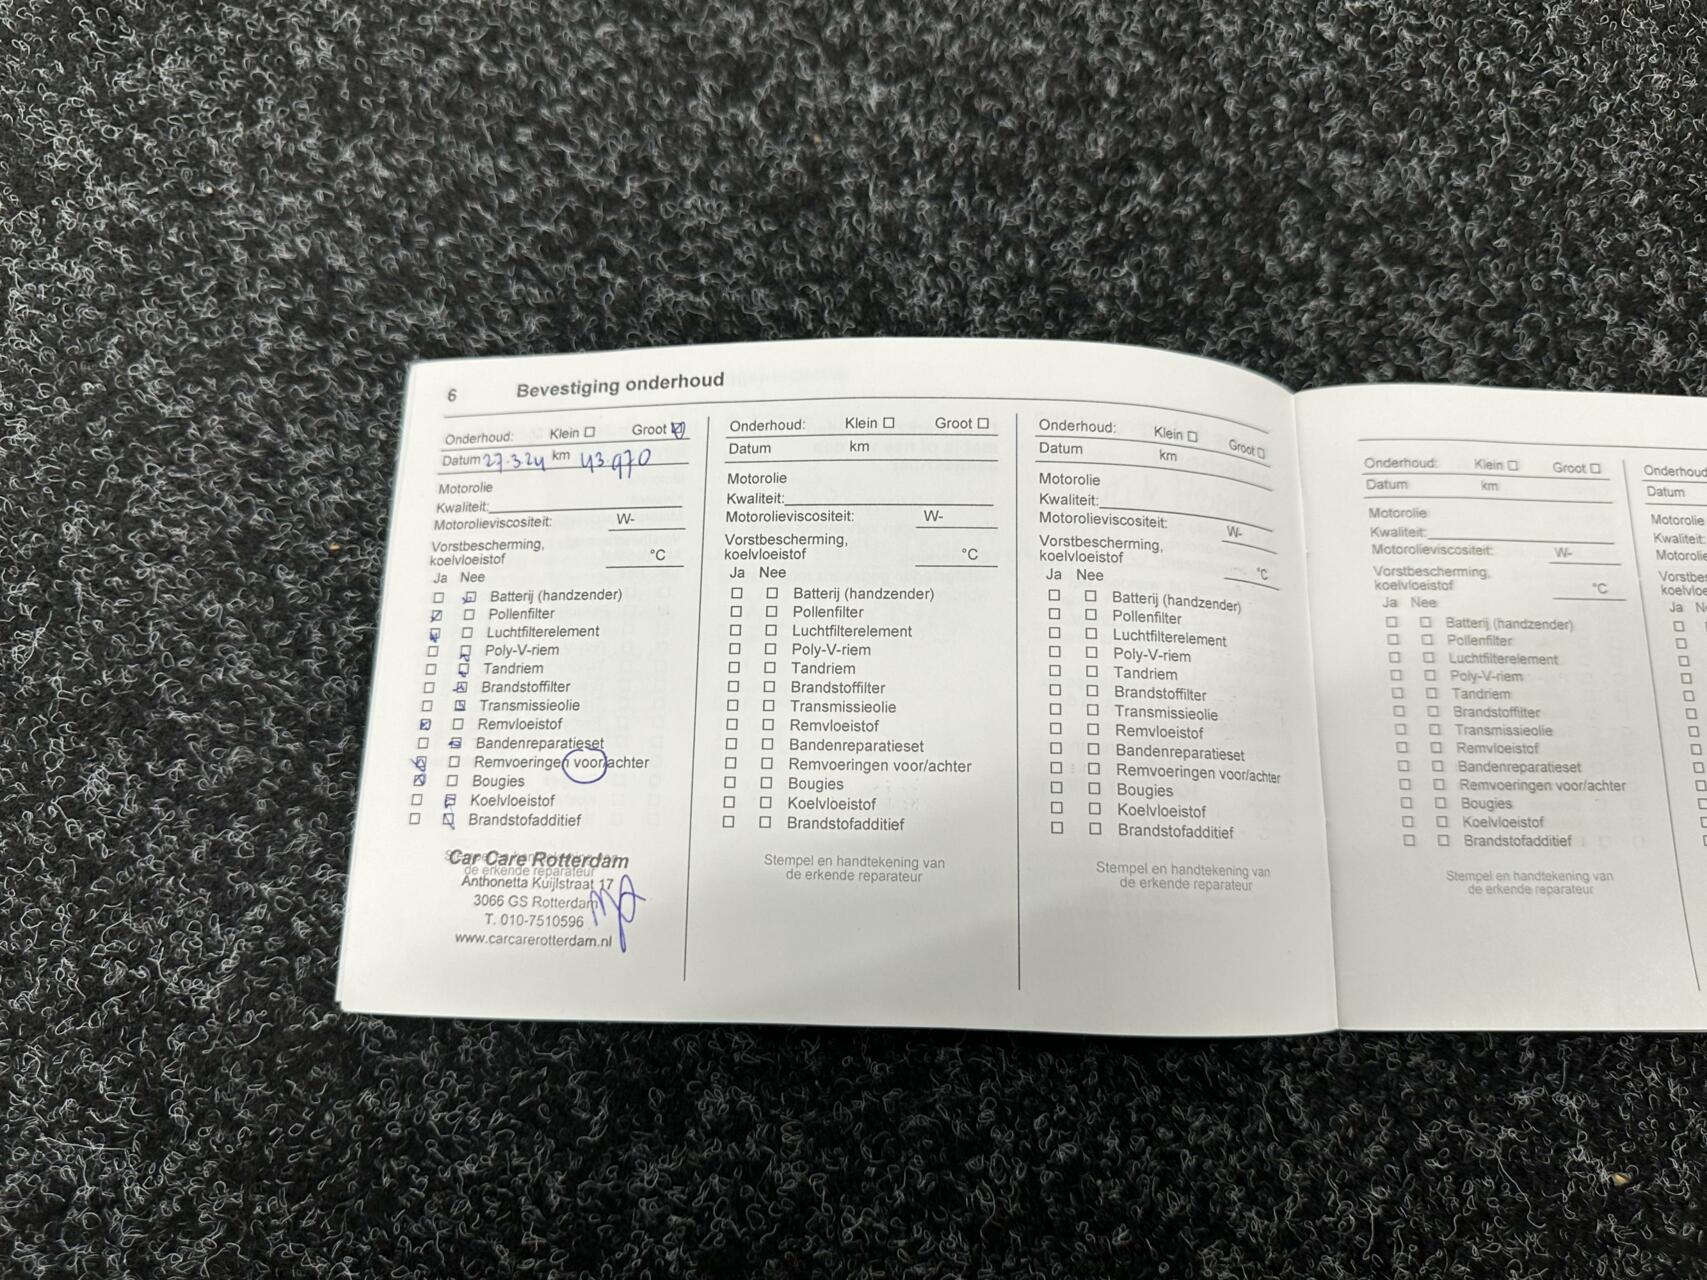 6 Bevestiging onderhoud
Onderhoud: Klein ☐ Groot ☒
Datum 27.3.24 km 43.970
Motorolie
Kwaliteit:
Motorolieviscositeit: W-
Vorstbescherming,
koelvloeistof °C
Ja Nee
☐ ☒ Batterij (handzender)
☒ ☐ Pollenfilter
☒ ☐ Luchtfilterelement
☐ ☒ Poly-V-riem
☐ ☒ Tandriem
☐ ☒ Brandstoffilter
☐ ☒ Transmissieolie
☒ ☐ Remvloeistof
☐ ☒ Bandenreparatieset
☒ ☐ Remvoeringen voor/achter
☒ ☐ Bougies
☐ ☒ Koelvloeistof
☐ ☒ Brandstofadditief
Car Care Rotterdam
de erkende reparateur
Anthonetta Kuijlstraat 17
3066 GS Rotterdam
T. 010-7510596
www.carcarerotterdam.nl
Onderhoud: Klein ☐ Groot ☐
Datum km
Motorolie
Kwaliteit:
Motorolieviscositeit: W-
Vorstbescherming,
koelvloeistof °C
Ja Nee
☐ ☐ Batterij (handzender)
☐ ☐ Pollenfilter
☐ ☐ Luchtfilterelement
☐ ☐ Poly-V-riem
☐ ☐ Tandriem
☐ ☐ Brandstoffilter
☐ ☐ Transmissieolie
☐ ☐ Remvloeistof
☐ ☐ Bandenreparatieset
☐ ☐ Remvoeringen voor/achter
☐ ☐ Bougies
☐ ☐ Koelvloeistof
☐ ☐ Brandstofadditief
Stempel en handtekening van
de erkende reparateur
Onderhoud: Klein ☐ Groot ☐
Datum km
Motorolie
Kwaliteit:
Motorolieviscositeit: W-
Vorstbescherming,
koelvloeistof °C
Ja Nee
☐ ☐ Batterij (handzender)
☐ ☐ Pollenfilter
☐ ☐ Luchtfilterelement
☐ ☐ Poly-V-riem
☐ ☐ Tandriem
☐ ☐ Brandstoffilter
☐ ☐ Transmissieolie
☐ ☐ Remvloeistof
☐ ☐ Bandenreparatieset
☐ ☐ Remvoeringen voor/achter
☐ ☐ Bougies
☐ ☐ Koelvloeistof
☐ ☐ Brandstofadditief
Stempel en handtekening van
de erkende reparateur
Onderhoud: Klein ☐ Groot ☐
Datum km
Motorolie
Kwaliteit:
Motorolieviscositeit: W-
Vorstbescherming,
koelvloeistof °C
Ja Nee
☐ ☐ Batterij (handzender)
☐ ☐ Pollenfilter
☐ ☐ Luchtfilterelement
☐ ☐ Poly-V-riem
☐ ☐ Tandriem
☐ ☐ Brandstoffilter
☐ ☐ Transmissieolie
☐ ☐ Remvloeistof
☐ ☐ Bandenreparatieset
☐ ☐ Remvoeringen voor/achter
☐ ☐ Bougies
☐ ☐ Koelvloeistof
☐ ☐ Brandstofadditief
Stempel en handtekening van
de erkende reparateur
Onderhoud
Datum
Motorolie
Kwaliteit:
Motorolie
Vorstbes
koelvloe
Ja N